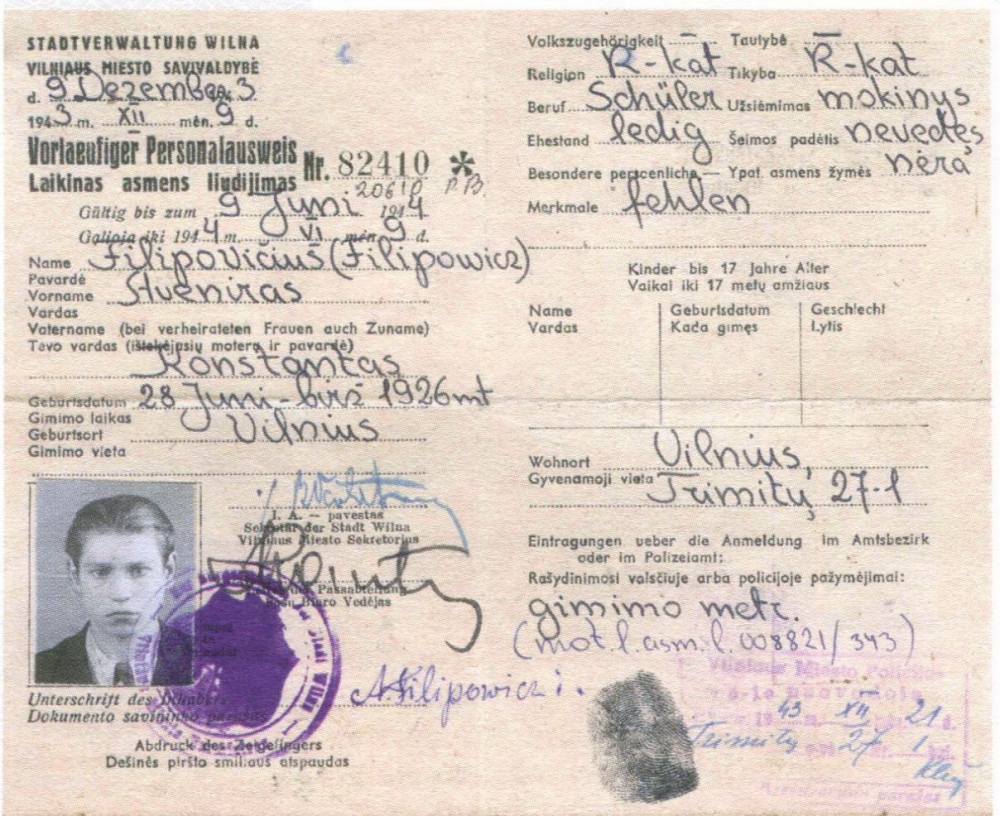 STADTVERWALTUNG WILNA
VILNIAUS MIESTO SAVIVALDYBĖ
d. 9 Dezember 3
1943 m. XII mėn. 9 d.
Vorlaeufiger Personalausweis Nr. 82410 *
Laikinas asmens liudijimas 20610 P.B.
Gültig bis zum 9 Juni 1944
Galioja iki 1944 m. VI mėn. 9 d.
Name Filipovičius (Filipowicz)
Pavardė
Vorname
Vardas
Vatername (bei verheirateten Frauen auch Zuname)
Tėvo vardas (ištekėjusių moterų ir pavardė)
Konstantas
Geburtsdatum 28 Juni - birž 1926 mt
Gimimo laikas
Geburtsort Vilnius
Gimimo vieta
I. A. — pavestas
Sekretär der Stadt Wilna
Vilniaus Miesto Sekretorius
Leiter der Passabteilung
Pasų Biuro Vedėjas
Unterschrift des Inhabers A. Filipowicz
Dokumento savininko parašas
Abdruck des Zeigefingers
Dešinės piršto smiliaus atspaudas
Volkszugehörigkeit — Tautybė —
Religion R-kat Tikyba R-kat
Beruf Schüler Užsiėmimas mokinys
Ehestand ledig Šeimos padėtis nevedęs
Besondere persoenliche — Ypat. asmens žymės nėra
Merkmale fehlen
Kinder bis 17 Jahre Alter
Vaikai iki 17 metų amžiaus
Name Geburtsdatum Geschlecht
Vardas Kada gimęs Lytis
Wohnort Vilnius,
Gyvenamoji vieta Trimitų 27-1
Eintragungen ueber die Anmeldung im Amtsbezirk
oder im Polizeiamt:
Įrašydinimosi valsčiuje arba policijoje pažymėjimai:
gimimo metr.
(mot. l. asm. l. 008821/343)
Vilniaus Miesto Policijos
nuovada
1943 m. XII 21 d.
Trimitų 27 1
parašas